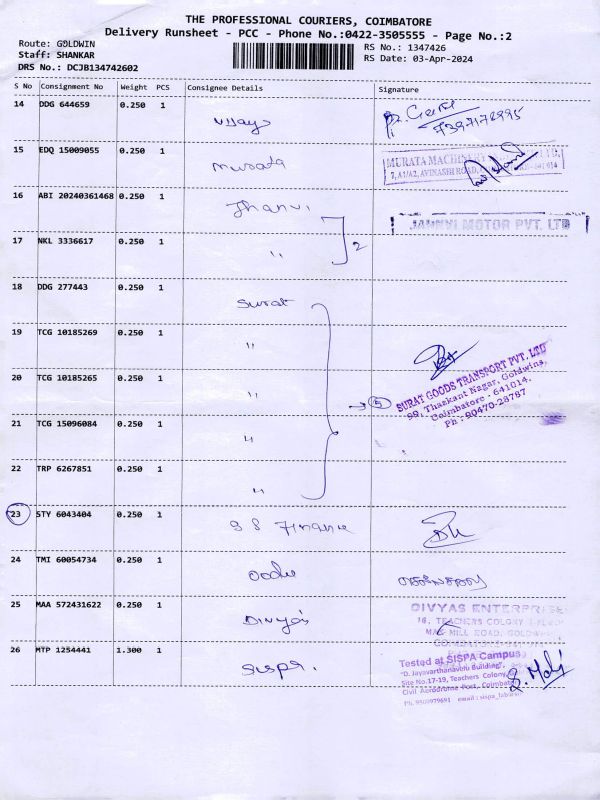 THE PROFESSIONAL COURIERS, COIMBATORE
Delivery Runsheet - PCC - Phone No.:0422-3505555 - Page No.:2
Route: GOLDWIN
Staff: SHANKAR
DRS No.: DCJB134742602
RS No.: 1347426
RS Date: 03-Apr-2024
S No Consignment No Weight PCS Consignee Details Signature
14 DDG 644659 0.250 1 Vijay
15 EDQ 15009055 0.250 1 Murata
MURATA MACHINERY
7, A1/A2, AVINASHI ROAD,
16 ABI 20240361468 0.250 1 Jhanvi
JANNVI MOTOR PVT. LTD
17 NKL 3336617 0.250 1 " 2
18 DDG 277443 0.250 1 Surat
19 TCG 10185269 0.250 1 "
20 TCG 10185265 0.250 1 " 5
SURAT GOODS TRANSPORT PVT. LTD
99, Thazkant Nagar, Goldwins,
Coimbatore - 641014.
Ph : 90470-28787
21 TCG 15096084 0.250 1 "
22 TRP 6267851 0.250 1 "
23 STY 6043404 0.250 1 S S Finance
24 TMI 60054734 0.250 1
25 MAA 572431622 0.250 1 Divya's
DIVYAS ENTERPRISE
16, TEACHERS COLONY
MILL ROAD, GOLDW
26 MTP 1254441 1.300 1 Sispa.
Tested at SISPA Campus
"D. Jayavarthanavelu Building",
Site No.17-19, Teachers Colony,
Civil Aerodrome Post, Coimbatore
S. Mali